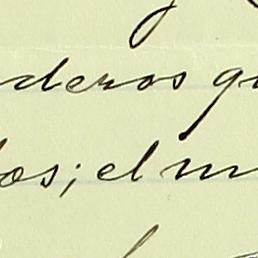 deros qu
os; el m